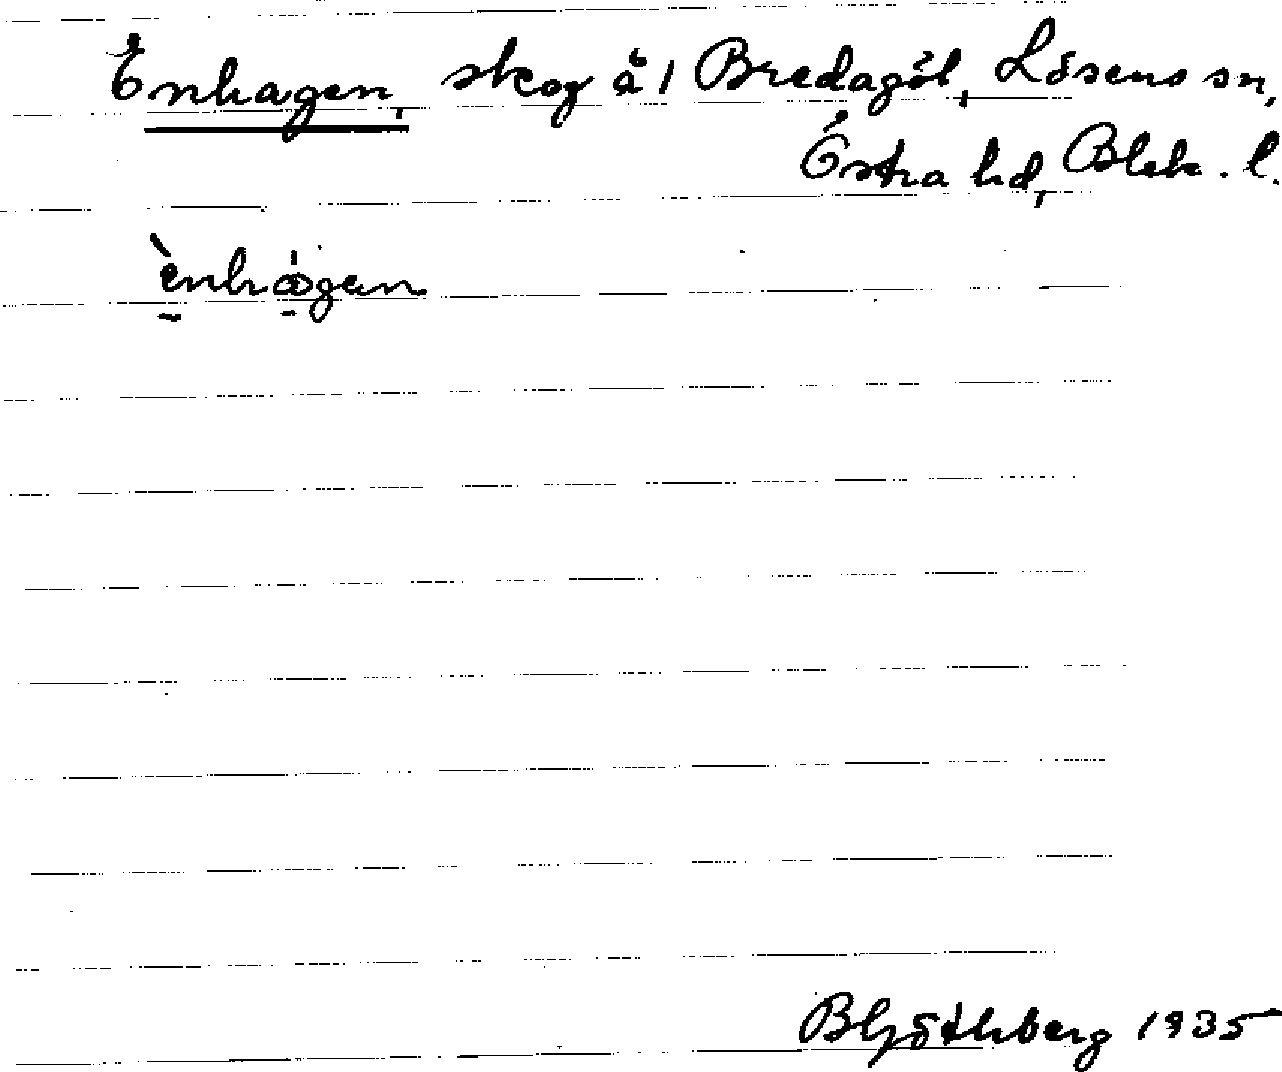 Enhagen, skog å 1 Bredagöl, Lösens sn,
Östra hd, Blek. l.
ènhágen
B Göthberg 1935